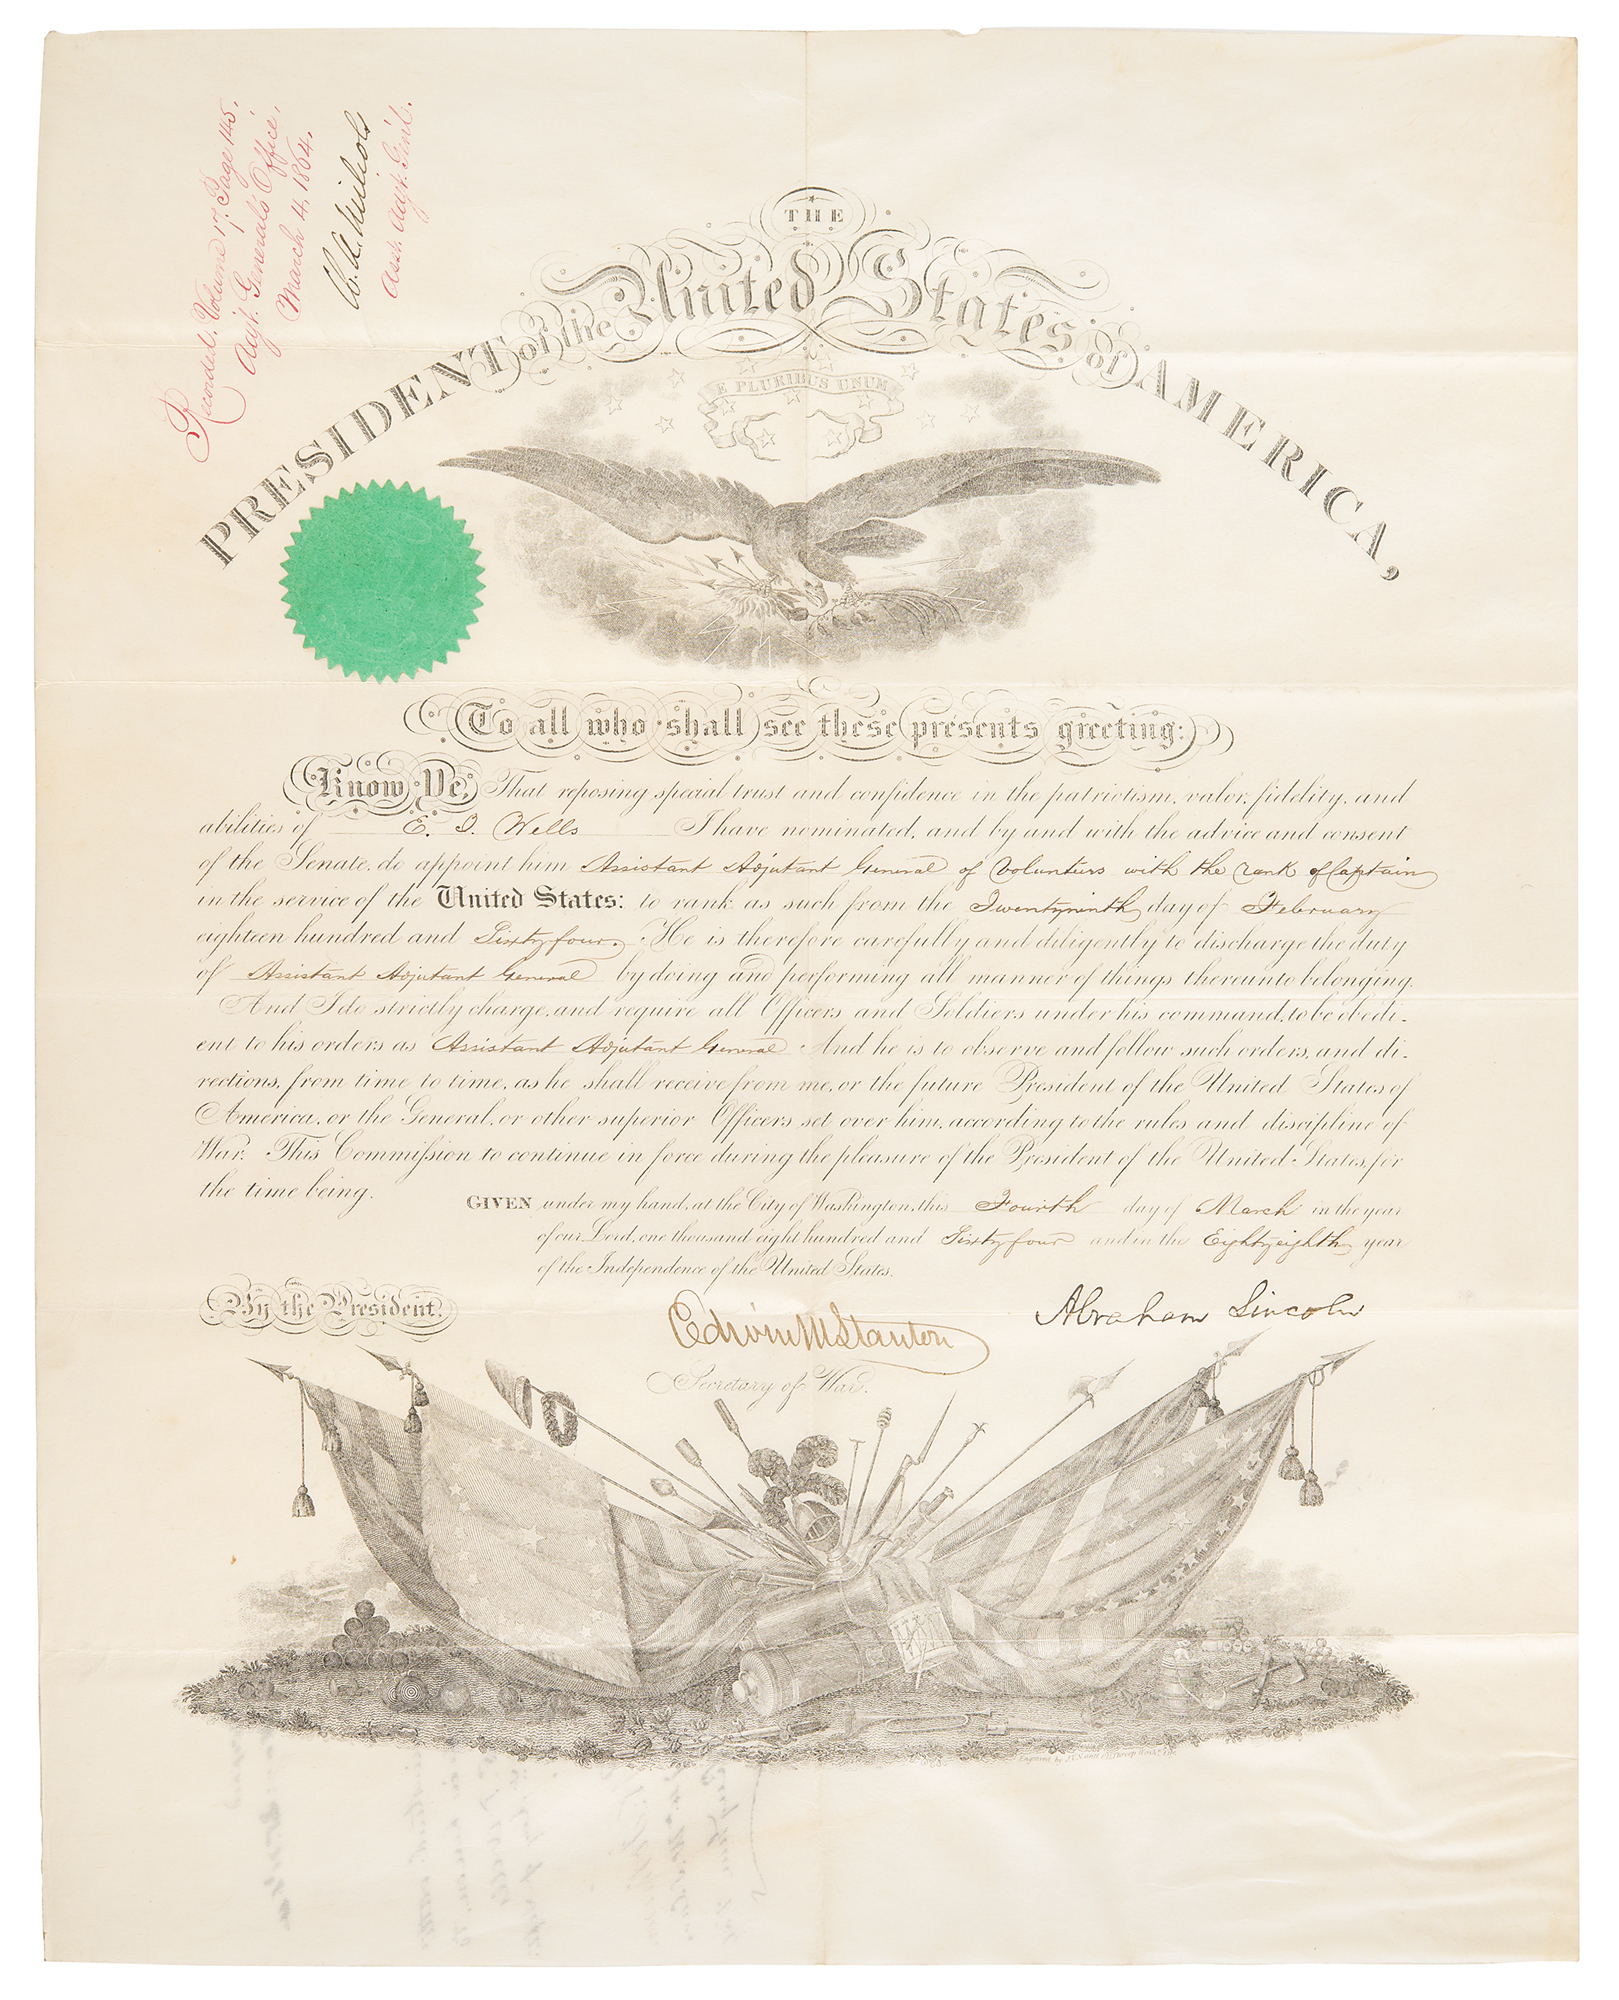 Recorded, Volume 17, Page 145,
Adjt. General's Office,
March 4, 1864.
Asst. Adjt. Gen'l.
THE
PRESIDENT of the United States of AMERICA,
E PLURIBUS UNUM
To all who shall see these presents greeting:
Know Ye, That reposing special trust and confidence in the patriotism, valor, fidelity, and
abilities of E. I. Wells I have nominated, and by and with the advice and consent
of the Senate, do appoint him Assistant Adjutant General of Volunteers with the rank of Captain
in the service of the United States: to rank as such from the Twentyninth day of February
eighteen hundred and Sixty four. He is therefore carefully and diligently to discharge the duty
of Assistant Adjutant General by doing and performing all manner of things thereunto belonging.
And I do strictly charge, and require all Officers and Soldiers under his command, to be obedi-
ent to his orders as Assistant Adjutant General And he is to observe and follow such orders, and di-
rections, from time to time, as he shall receive from me, or the future President of the United States of
America, or the General, or other superior Officers set over him, according to the rules and discipline of
War. This Commission to continue in force during the pleasure of the President of the United States, for
the time being.
GIVEN under my hand, at the City of Washington, this Fourth day of March in the year
of our Lord, one thousand eight hundred and Sixty four and in the Eighty eighth year
of the Independence of the United States.
By the President.
Abraham Lincoln
Edwin M Stanton
Secretary of War.